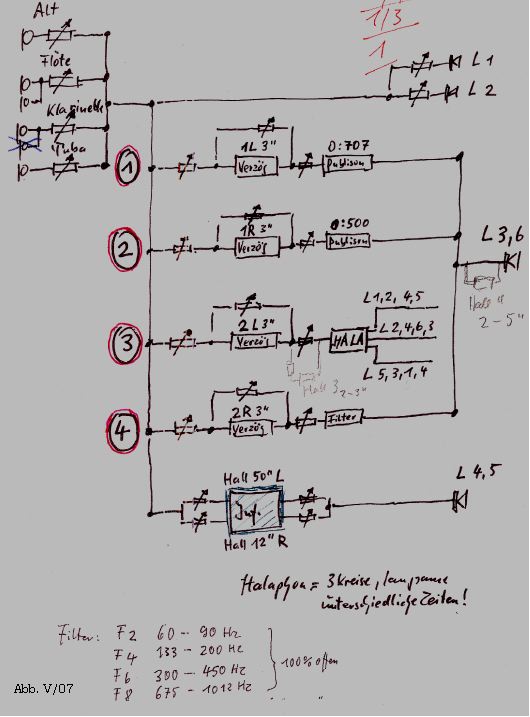 Alt
1/3
1
Flöte
L 1
L 2
Klarinette
Tuba
1
1L 3"
Verzög
0:707
Publison
2
1R 3"
Verzög
0:500
Publison
L 3,6
Hall 4
2-5"
3
2L 3"
Verzög
HALA
L 1, 2, 4, 5
L 2, 4, 6, 3
L 5, 3, 1, 4
Hall 3
2-3"
4
2R 3"
Verzög
Filter
Hall 50" L
Inf.
Hall 12" R
L 4,5
Halaphon = 3 Kreise, langsame
unterschiedliche Zeiten!
Filter: F2 60 - 90 Hz
F4 133 - 200 Hz
F6 300 - 450 Hz
F8 675 - 1012 Hz
100% offen
Abb. V/07